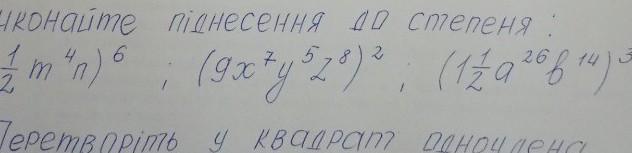 иконайте піднесення до степеня:
1/2 m⁴n)⁶ ; (9x⁷y⁵z⁸)² ; (1 1/2 a²⁶b¹⁴)³
Перетворіть у квадрат одночлена